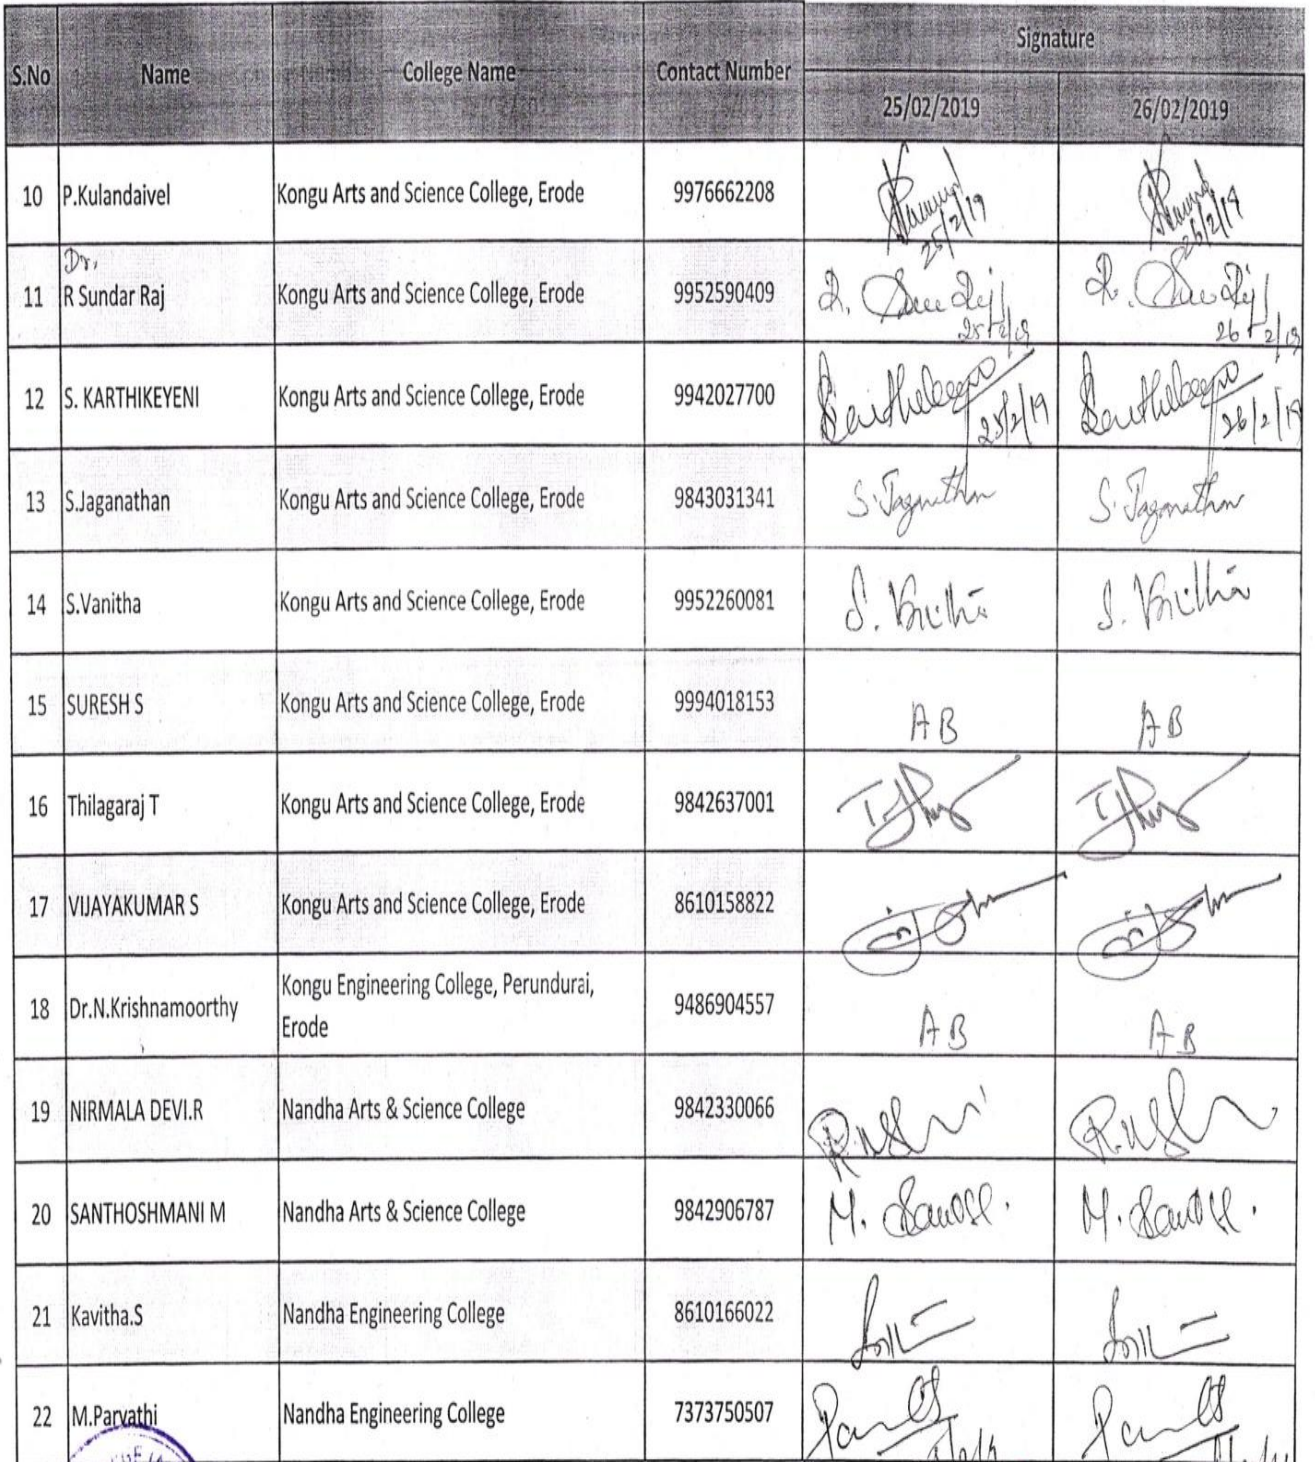 S.No Name College Name Contact Number Signature
25/02/2019 26/02/2019
10 P.Kulandaivel Kongu Arts and Science College, Erode 9976662208
25/2/19 26/2/19
Dr.
11 R Sundar Raj Kongu Arts and Science College, Erode 9952590409
25/2/19 26/2/19
12 S. KARTHIKEYENI Kongu Arts and Science College, Erode 9942027700
25/2/19 26/2/19
13 S.Jaganathan Kongu Arts and Science College, Erode 9843031341 S. Jaganathan S. Jaganathan
14 S.Vanitha Kongu Arts and Science College, Erode 9952260081 S. Vanitha S. Vanitha
15 SURESH S Kongu Arts and Science College, Erode 9994018153 AB AB
16 Thilagaraj T Kongu Arts and Science College, Erode 9842637001
17 VIJAYAKUMAR S Kongu Arts and Science College, Erode 8610158822
18 Dr.N.Krishnamoorthy Kongu Engineering College, Perundurai,
Erode 9486904557 AB AB
19 NIRMALA DEVI.R Nandha Arts & Science College 9842330066
20 SANTHOSHMANI M Nandha Arts & Science College 9842906787
21 Kavitha.S Nandha Engineering College 8610166022
22 M.Parvathi Nandha Engineering College 7373750507